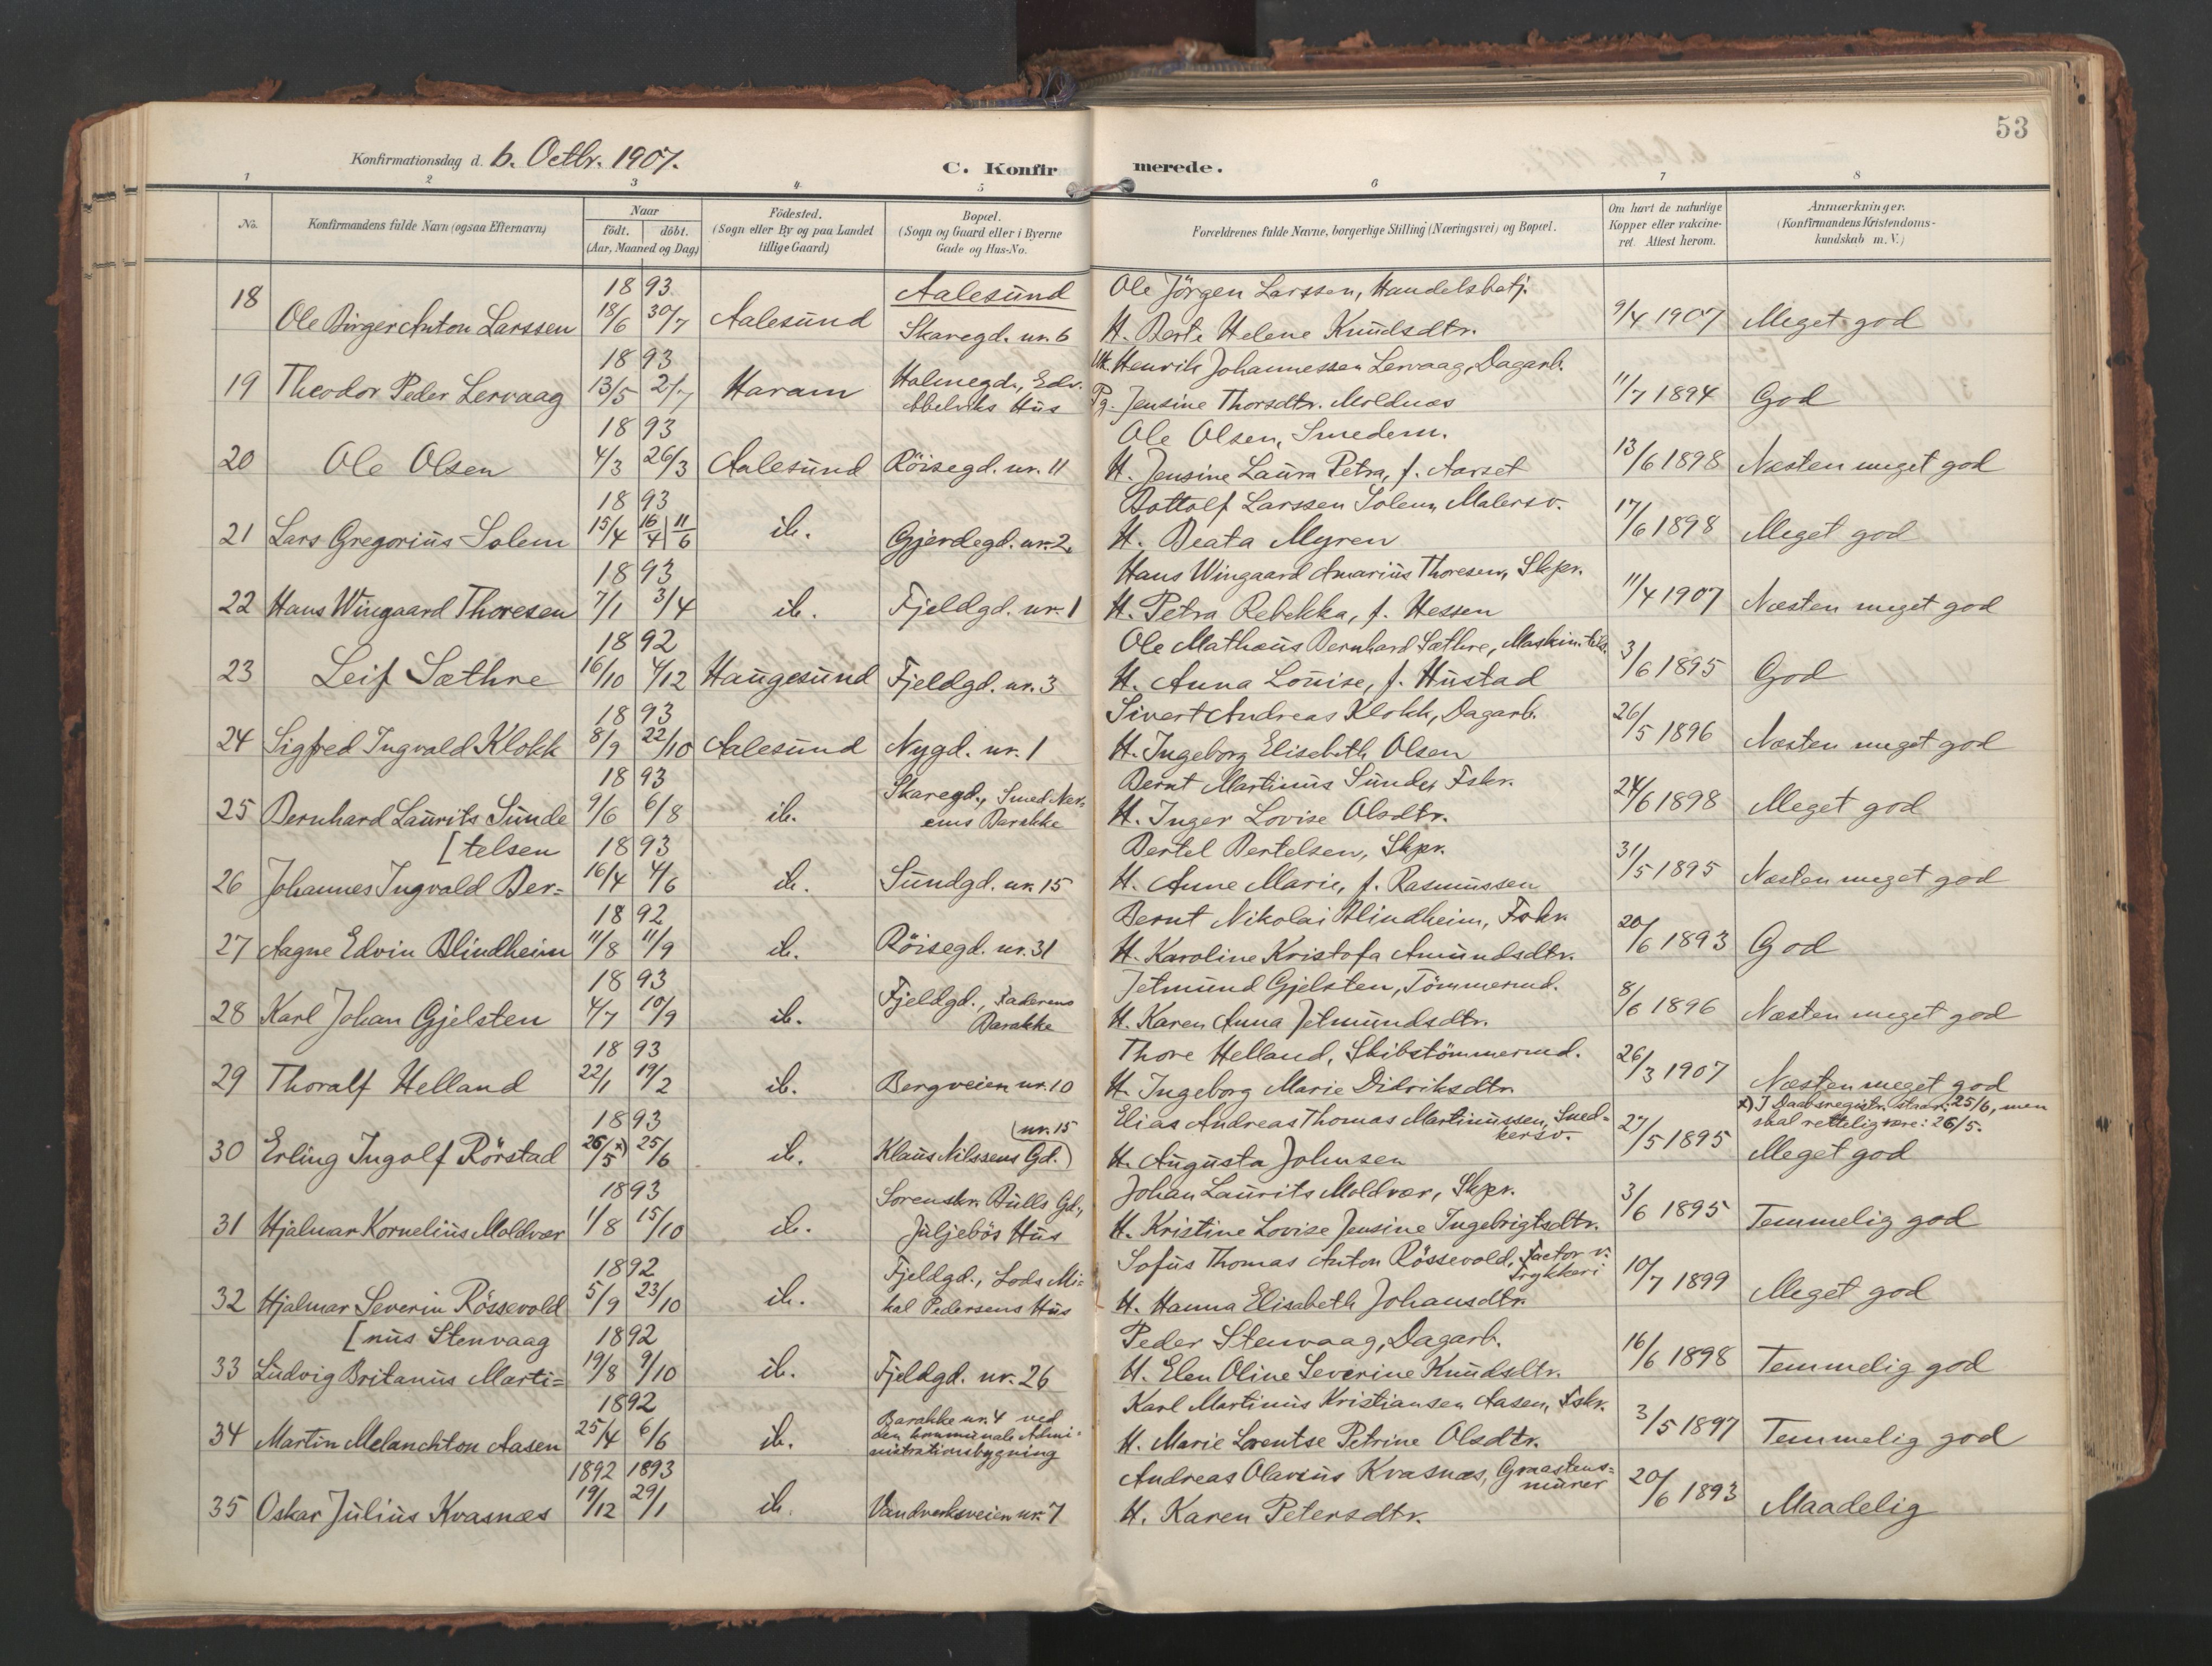 53
Konfirmationsdag d. 6. Octbr. 1907. C. Konfirmerede.
1 2 3 4 5 6 7 8
No. Konfirmandens fulde Navn (ogsaa Efternavn) Naar födt. döbt. (Aar, Maaned og Dag) Födested. (Sogn eller By og paa Landet tillige Gaard) Bopæl. (Sogn og Gaard eller i Byerne Gade og Hus-No. Forældrenes fulde Navne, borgerlige Stilling (Næringsvei) og Bopæl. Om havt de naturlige Kopper eller vakcineret. Attest herom. Anmærkninger. (Konfirmandens Kristendomskundskab m. V.)
18 1893 Aalesund Ole Jörgen Larssen, Handelsbetj.
Ole Birger Anton Larssen 18/6 30/7 Aalesund Skaregd. nr. 6 H. Berte Helene Knudsdtr. 9/4 1907 Meget god
1893 Uk. Henrik Johannessen Lervaag, Dagarb.
19 Theodor Peder Lervaag 13/5 2/7 Haram Holmegd., Edv. Abelviks Hus Pg. Jensine Thorsdtr. Moldnæs 11/7 1894 God
1893 Ole Olsen, Smedem.
20 Ole Olsen 4/3 26/3 Aalesund Röisegd. nr. 11 H. Jensine Laura Petra, f. Aarset 13/6 1898 Næsten meget god
1893 Bottolf Larssen Solem, Malersv.
21 Lars Gregorius Solem 15/4 16/4 11/6 ib. Gjerdegd. nr. 2. H. Beata Myren 17/6 1898 Meget god
1893 Hans Wingaard Amarius Thoresen, Skpr.
22 Hans Wingaard Thoresen 7/1 3/4 ib. Fjeldgd. nr. 1 H. Petra Rebekka, f. Hessen 11/4 1907 Næsten meget god
1892 Ole Mathæus Bernhard Sæthre, Maskin.
23 Leif Sæthre 16/10 4/12 Haugesund Fjeldgd. nr. 3 H. Anna Louise, f. Hustad 3/6 1895 God
1893 Sivert Andreas Klokk, Dagarb.
24 Sigfred Ingvald Klokk 8/9 22/10 Aalesund Nygd. nr. 1 H. Ingeborg Elisebeth Olsen 26/5 1896 Næsten meget god
1893 Skaregd., Smed Bernt Martinus Sunde, Fskr.
25 Bernhard Laurits Sunde 9/6 6/8 ib. Barakke H. Inger Lovise Olsdtr. 24/6 1898 Meget god
[telsen 1893 Bertel Bertelsen, Skpr.
26 Johannes Ingvald Ber= 16/4 4/6 ib. Sundgd. nr. 15 H. Anne Marie, f. Rasmussen 31/5 1895 Næsten meget god
1892 Bernt Nikolai Blindheim, Fskr.
27 Aagne Edvin Blindheim 11/8 11/9 ib. Röisegd. nr. 31 H. Karoline Kristofa Amundsdtr. 20/6 1893 God
1893 Jetmund Gjelsten, Tömmermd.
28 Karl Johan Gjelsten 4/7 10/9 ib. Fjeldgd., Faderens Barakke H. Karen Anna Jetmundsdtr. 8/6 1896 Næsten meget god
1893 Thore Helland, Skibstömmermd.
29 Thoralf Helland 22/1 19/2 ib. Bergveien nr. 10 H. Ingeborg Marie Didriksdtr. 26/3 1907 Næsten meget god
x) I Daabsregistr. staar: 25/6, men
skal rettelig være: 26/5.
1893 nr. 15 Elias Andreas Thomas Martinussen, Snedkersv.
30 Erling Ingolf Rörstad 26/5 x) 25/6 ib. Klaus Nilssens Gd. H. Augusta Johnsen 27/5 1895 Meget god
1893 Sorenskr. Bulls Gd., Johan Laurits Moldvær, Skpr.
31 Hjalmar Kornelius Moldvær 1/8 15/10 ib. Juljebös Hus H. Kristine Lovise Jensine Ingebrigtsdtr. 3/6 1895 Temmelig god
1892 Fjeldgd., Lods Mi= Sofus Thomas Anton Rössevold, Factor v. Trykkeri
32 Hjalmar Severin Rössevold 5/9 23/10 ib. kal Pedersens Hus H. Hanna Elisabeth Johansdtr. 10/7 1899 Meget god
[nus Stenvaag 1892 Peder Stenvaag, Dagarb.
33 Ludvig Britanus Marti= 19/8 9/10 ib. Fjeldgd. nr. 26 H. Elen Oline Severine Knudsdtr. 16/6 1898 Temmelig god
1892 Barakke nr. 4 ved Karl Martinus Kristiansen Aasen, Fskr.
34 Martin Melanchton Aasen 25/4 6/6 ib. den kommunale Administrationsbygning H. Marie Lorentse Petrine Olsdtr. 3/5 1897 Temmelig god
1892 1893 Andreas Olavius Kvasnæs, Graastens=murer
35 Oskar Julius Kvasnæs 19/12 29/1 ib. Vandverksveien nr. 7 H. Karen Petersdtr. 20/6 1893 Maadelig